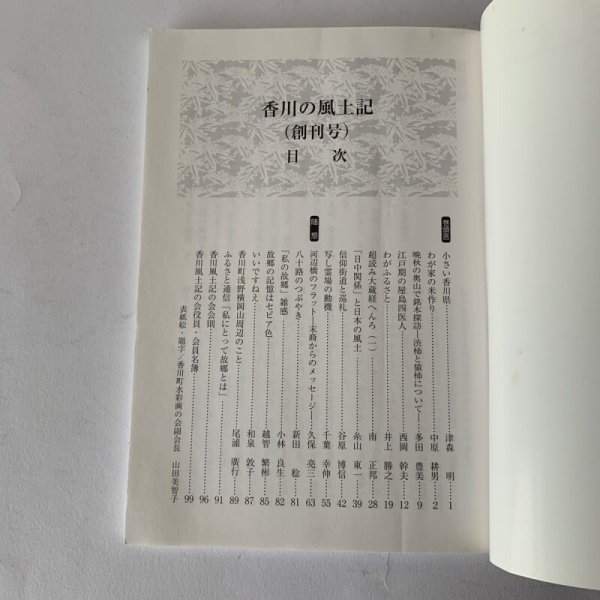 香川の風土記
（創刊号）
目　次
巻頭言
小さい香川県……津森　明…1
わが家の米作り……中原　耕男…2
晩秋の奥山で銘木探訪―渋柿と猿柿について―……多田　豊美…9
江戸期の屋島四医人……西岡　幹夫…12
わがふるさと……井上　勝之…19
超読み大蔵経へんろ（一）……南　正邦…28
「日中関係」と日本の風土……糸山　東一…39
信仰街道と巡礼……谷原　博信…42
写し霊場の動機……千葉　幸伸…55
随想
河辺橋のフラット―末裔からのメッセージ―……久保　亮三…63
八十路のつぶやき……新田　稔…81
「私の故郷」雑感……小林　良生…82
故郷の記憶はセピア色……越智　繁彬…85
いいですねえ……和泉　敦子…87
香川町浅野横岡山周辺のこと……尾浦　廣行…89
ふるさと通信「私にとって故郷とは」……91
香川風土記の会会則……96
香川風土記の会役員・会員名簿……99
表紙絵・題字／香川町水彩画の会副会長　山田美智子